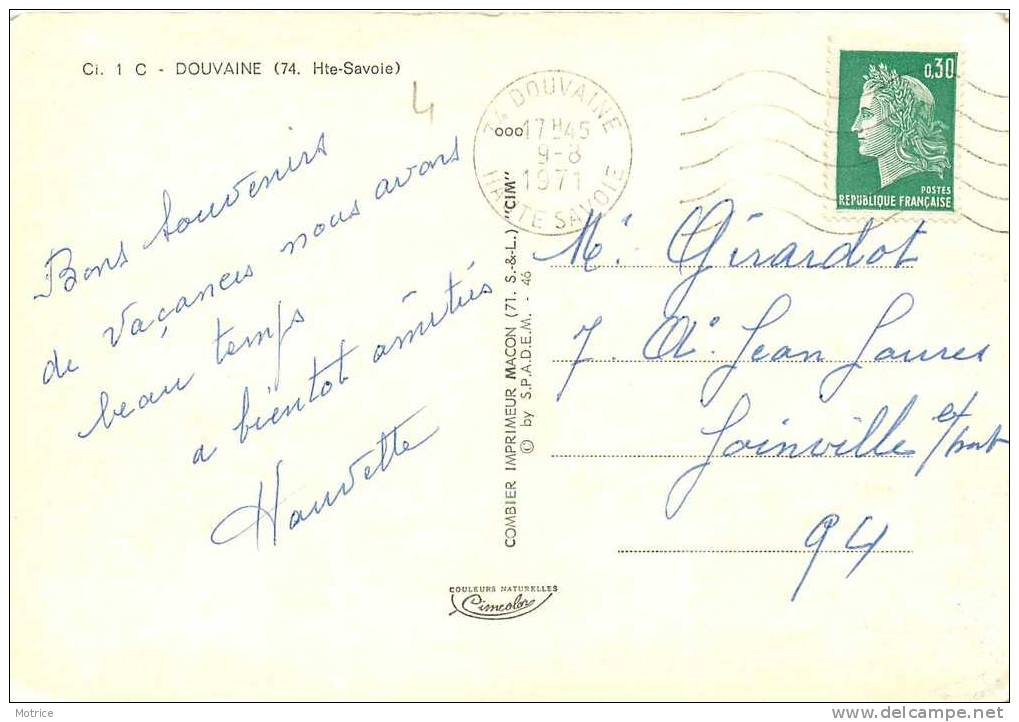 Ci. 1 C - DOUVAINE (74. Hte-Savoie)
4
Bons souvenirs
de vaçances nous avons
beau temps
a bientot amitiés
Hauvette
COMBIER IMPRIMEUR MACON (71. S.-&-L.) "CIM"
© by S.P.A.D.E.M. - 46
COULEURS NATURELLES
Cimcolor
74 DOUVAINE
ooo 17H45
9-8
1971
HAUTE SAVOIE
0,30
POSTES
REPUBLIQUE FRANÇAISE
Mr Girardot
7. Jean Jaures
Joinville
94
Motrice
www.delcampe.net